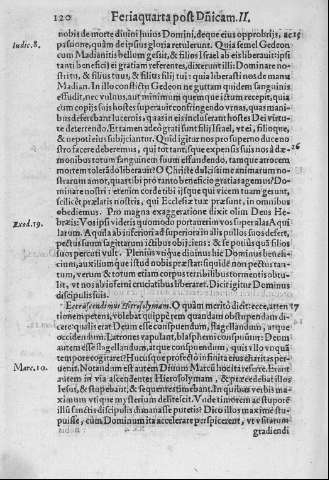 120 Feria quarta post Dñicam. II.
nobis de morte diuini huius Domini, deque eius opprobrijs, ac 15
passione, quàm de ipsius gloria retulerunt. Quia semel Gedeon
Iudic. 8. cum Madianitis bellum gessit, & filios Israel ab eis liberauit: ipsi
tanti beneficij ei gratiam referentes, dixerunt illi: Dominare no-
stri tu, & filius tuus, & filius filij tui: quia liberasti nos de manu
Madian. In illo conflictu Gedeon ne guttam quidem sanguinis
effudit, nec vulnus, aut minimum quemque ictum recepit, quia
cum copijs suis hostes superauit confringendo vrnas, quas mani-
bus deferebant lucernis, quas in eis incluserant hostes Dei virtu-
te deterrendo. Et tamen adeò grati sunt filij Israel, vt ei, filioque,
& nepoti eius subijciantur. Quid igitur nos pro superno duce no
stro facere deberemus, qui tot tantisque expensis suis nos à dæ- 26
monibus totum sanguinem suum effundendo, tamque atrocem
mortem tolerādo liberauit? O Christe dulcissime animarum no-
strarum amor, quas tibi pro tanto beneficio gratias agemus? Do-
minare nostri: etenim corde tibi ijsque qui vicem tuam gerunt,
scilicet prælatis nostris, qui Ecclesiæ tuæ præsunt, in omnibus
obediemus. Pro magna exaggeratione dixit olim Deus He-
Exod. 19. bræis: Vos ipsi videris quomodo portauerim vos super alas Aqui
larum. Aquila ab inferiori ad superiora in alis pullos suos defert,
pectus suum sagittarum ictibus obijciens: & se potiùs quā filios
suos percuti vult. Pleniùs vtique diuinus hic Dominus benefi-
cium, auxilium que istud nobis præstat: siquidem non pectus tan-
tum, verum & totum etiam corpus terribilibus tormentis obtu-
lit, vt nos ab inferni cruciatibus liberaret. Dicit igitur Dominus
discipulis suis.
Ecce ascendimus Hierosolymam. O quàm meritò dicit: ecce, atten 17
tionem petens, volebat quippe rem quandam obstupendam di-
cere: qualis erat Deum esse conspuendum, flagellandum, atque
occidendum. Latrones vapulant, blasphemi conspuunt: Deum
autem esse flagellandum, atque conspuendum, quis vllo vnquā
tempore cogitaret? Hucusque profectò infinita eius charitas per-
Marc. 10. uenit. Notandum est autem Diuum Marcū hoc ita referre. Erant
autem in via ascendentes Hierosolymam, & præcedebat illos
Iesus, & stupebant, & sequentes timebant. In quibus verbis ma-
ximum vtique mysterium delitescit. Vnde timorem ac stupore
illū sanctis discipulis dimanasse putetis? Dico illos maxime stu-
puisse, cùm Dominum ita accelerare perspicerent, vt vsitatum
gradiendi